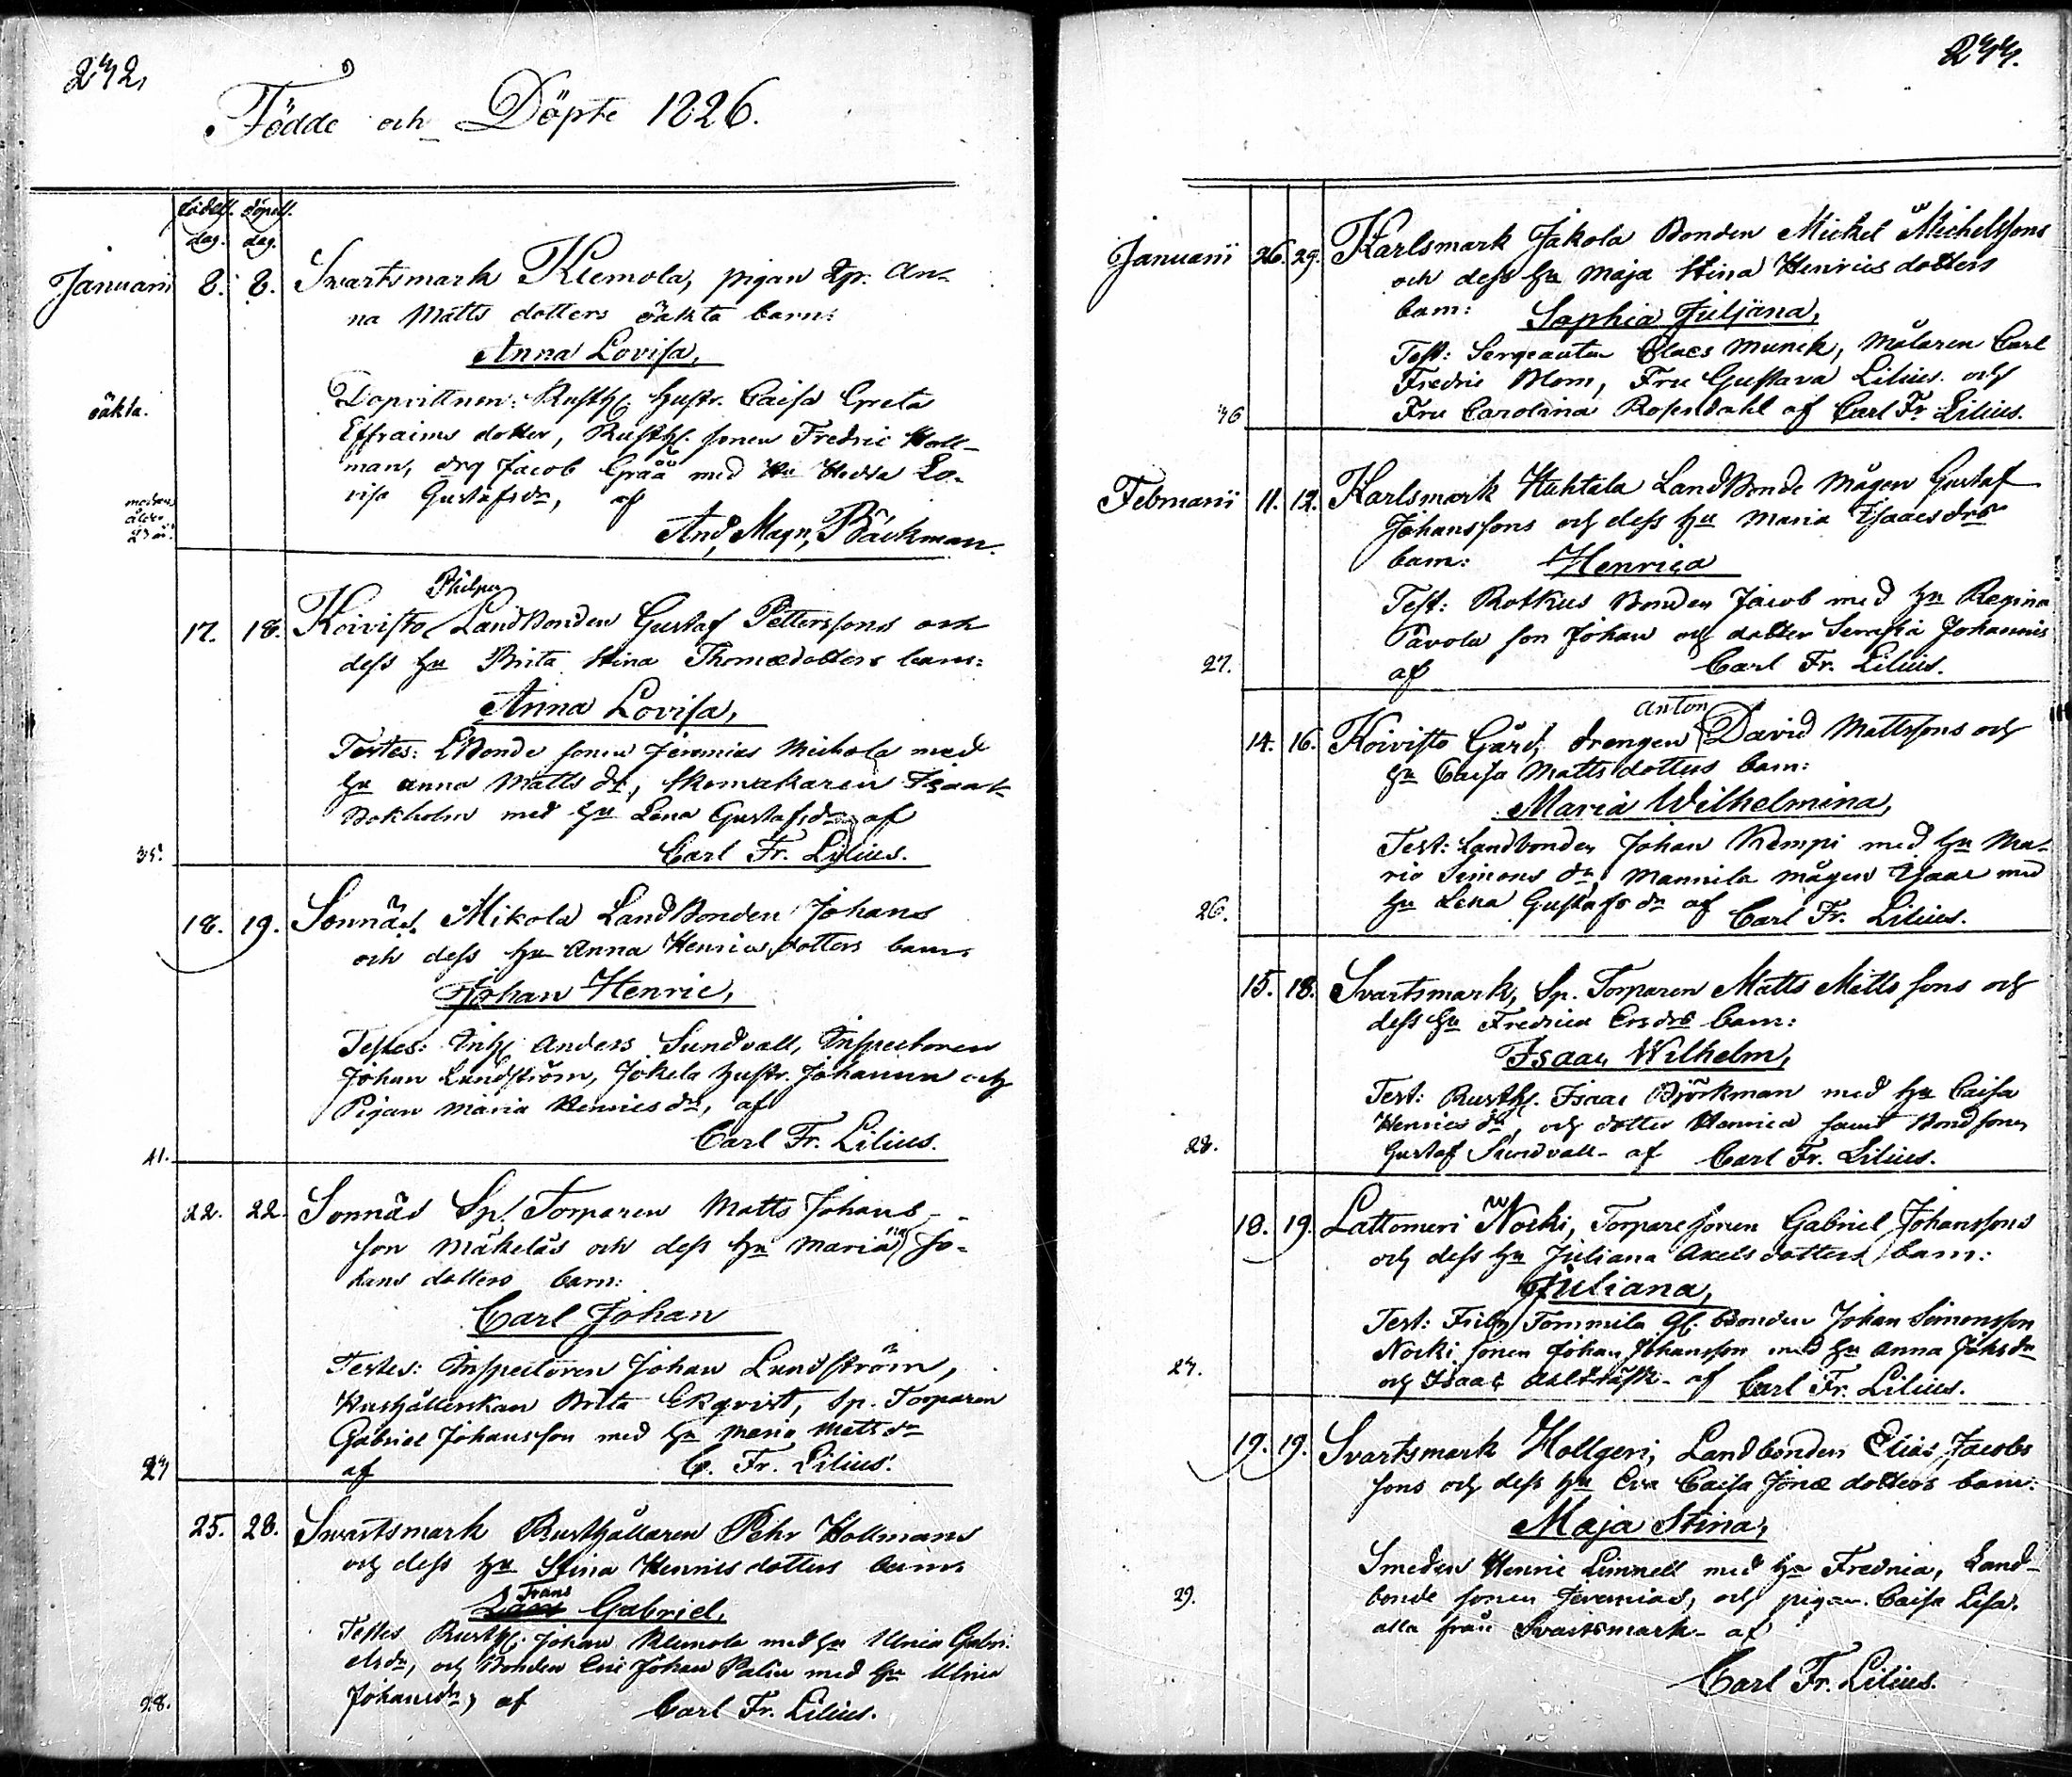 242,
Födde och Döpte 1826.
födelse döpelse
dag. dag.
Januarii 8. 8. Svartsmark Klemola, pigan An-
na Matts dotters oäkta barn:
Anna Lovisa,
oäkta.
Dopvittnen: Rusth. hustr. Caisa Greta
Effraims dotter, Rusth. sonen Fredric Holl-
man, drg Jacob Gråå med Hu Hedda Lo-
visa Gustafsdr, af
And. Magn. Bäckman.
Philpu
17. 18. Koivisto LandBonden Gustaf Petterssons och
dess hu Brita Stina Thomædotters barn:
Anna Lovisa,
Testes: LBonde sonen Jeremias Michola med
hu Anna Matts dr, Skomakaren Isaak
Bokholm med hu Lena Gustafsdr af
35. Carl Fr. Lilius.
18. 19. Sonnäs Mikola LandBonden Johans
och dess hu Anna Henrics dotters barn
Johan Henric,
Testes: Inh. Anders Sundvall, Inspectoren
Johan Lundström, Jokela hustr. Johanna och
Pigan Maria Henricsdr, af
41. Carl Fr. Lilius.
22. 22. Sonnäs Sp. Torparen Matts Johans-
son Mäkeläs och dess hu Maria Jo-
hans dotters barn:
Carl Johan
Testes: Inspectoren Johan Lundström,
Hushållerskan Brita Ekqvist, Sp. Torparen
Gabriel Johansson med hu Maria Mattsdr
27 af C. Fr. Lilius.
25. 28. Svartsmark Rusthållaren Pehr Hollmans
och dess hu Stina Henricsdotters barn
Frans
Gabriel,
Testes Rusth. Johan Klemola med hu Ulrica Gabri-
elsdr, och Bonden Eric Johan Palin med hu Ulrica
Johansdr, af Carl Fr. Lilius.
28.
244.
Januarii 26. 29. Karlsmark Jakola Bonden Mickel Michelssons
och dess hu Maja Stina Henrics dotters
barn: Sophia Juljana,
Test: Sergeanten Claes Munck, Målaren Carl
Fredric Blom, Fru Gustava Lilius och
Fru Carolina Rosendahl af Carl Fr. Lilius.
Februarii 11. 12. Karlsmark Huhtala LandBonde Mågen Gustaf
Johanssons och dess hu Maria Isaacsdrs
barn: Henrica
Test: Rotkus Bonden Jacob med hu Regina
Pavola son Johan och dotter Serafia Johannis
27. af Carl Fr. Lilius.
Anton
14. 16. Koivisto Gård, drengen David Mattssons och
hu Caisa Matts dotters barn:
Maria Wilhelmina,
Test: Landbonden Johan Kempi med hu Ma-
ria Simonsdr, Mannila mågen Isaac med
hu Lena Gustafsdr af Carl Fr. Lilius.
26.
15. 18. Svartsmark, Sp. Torparen Matts Matts sons och
dess hu Fredrica Ersdrs barn:
Isaac Wilhelm,
Test: Rusth. Isaac Björkman med hu Caisa
Henricsdr, och dotter Henrica samt Bondsonen
Gustaf Sundvall - af Carl Fr. Lilius.
28.
18. 19. Lattomeri Norki, Torpare sonen Gabriel Johanssons
och dess hu Juliana Axels dotters barn:
Juliana,
Test: Tommila Gl. Bonden Johan Simonsson
Norki sonen Johan Johansson med hu Anna Johsdr
och Isaac - af Carl Fr. Lilius.
27.
19. 19. Svartsmark Hollgeri, Landbonden Elias Jacobs
sons och dess hu Eva Caisa Jonæ dotters barn:
Maja Stina,
Smeden Henric Linnell med hu Fredrica, Land-
29. bonde sonen Jeremias, och pigan Caisa Lisa,
alla från Svartsmark - af
Carl Fr. Lilius.